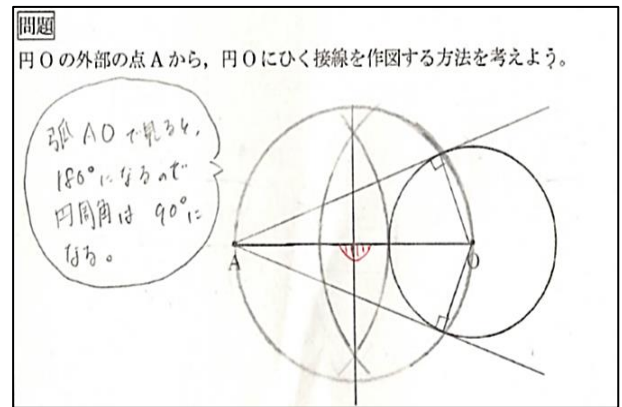 問題
円Oの外部の点Aから，円Oにひく接線を作図する方法を考えよう。
弧AOで見ると，
180°になるので
円周角は90°に
なる。
A
O